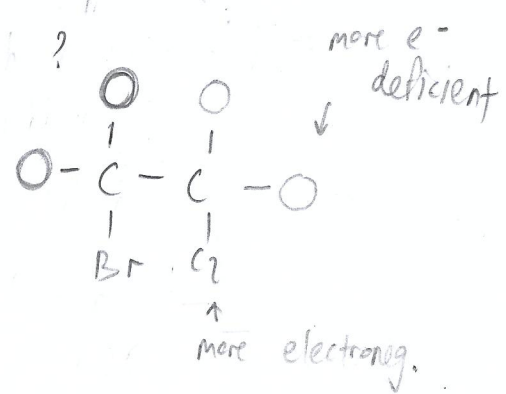 ?
more e-
deficient
O O
O - C - C - O
Br . Cl
more electroneg.